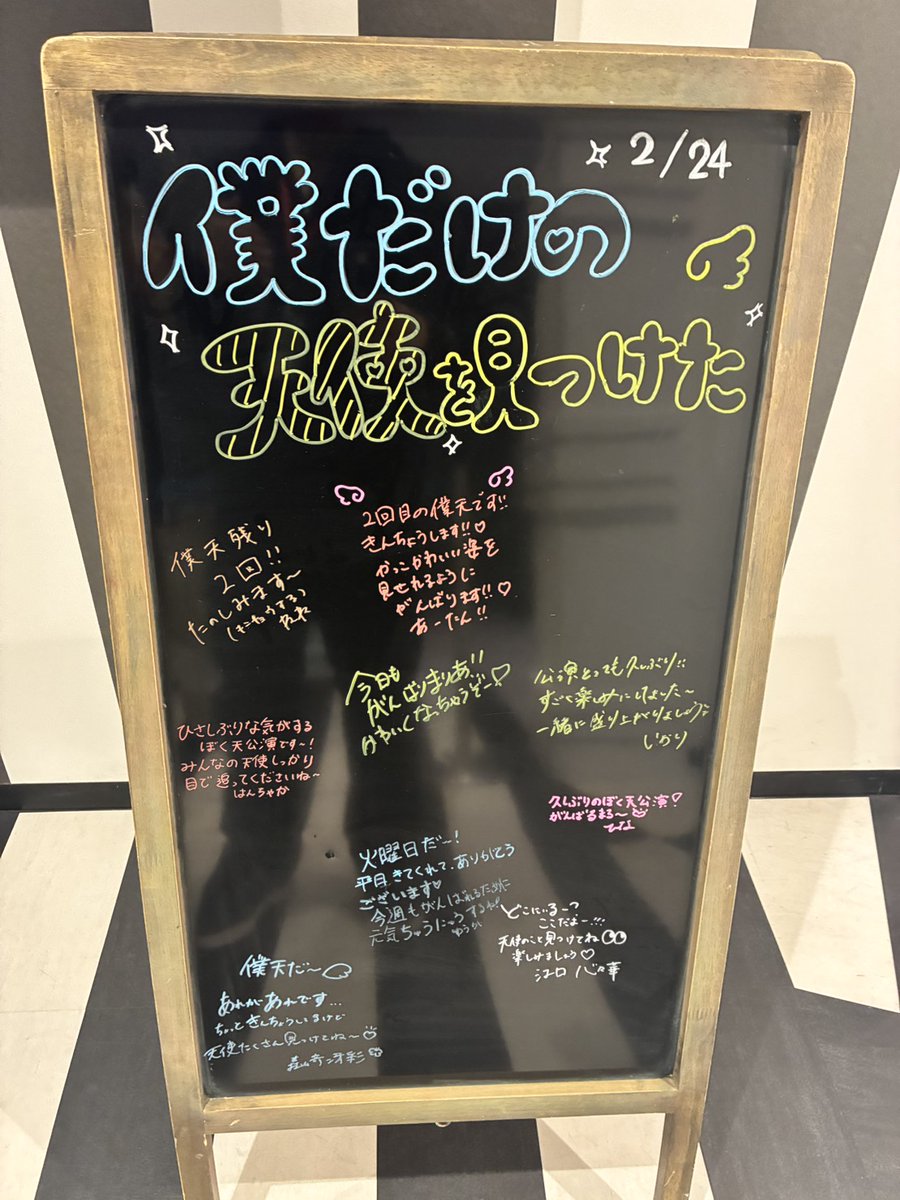 2/24
僕だけの
天使を見つけた
僕天残り
2回!!
たのしみます〜
2回目の僕天です!!
きんちょうします!!♡
かっこかわいい姿を
見せれるように
がんばります!!♡
あーたん!!
今日も
がんばりまりあ!!
かわいくなっちゃうぞー!♡
公演とっても久しぶり!!
すごく楽しみにしてました〜
一緒に盛り上がりましょう
しかり
ひさしぶりな気がする
ぼく天公演です〜!
みんなの天使しっかり
目で追ってくださいね〜
はんちゃか
久しぶりのぼく天公演!
がんばるまる〜
ひな
火曜日だ〜!
平日きてくれて、ありがとう
ございます♡
今週もがんばれるために
元気ちゅうにゅうするね!
ゆうか
どこにいるー?
ここだよー!!!
天使のこと見つけてね
楽しみましょう♡
江口 心々華
僕天だ〜
あれがあれです...
ちょっときんちょうしてるけど
天使たくさん見つけてね〜
森山奇冴彩